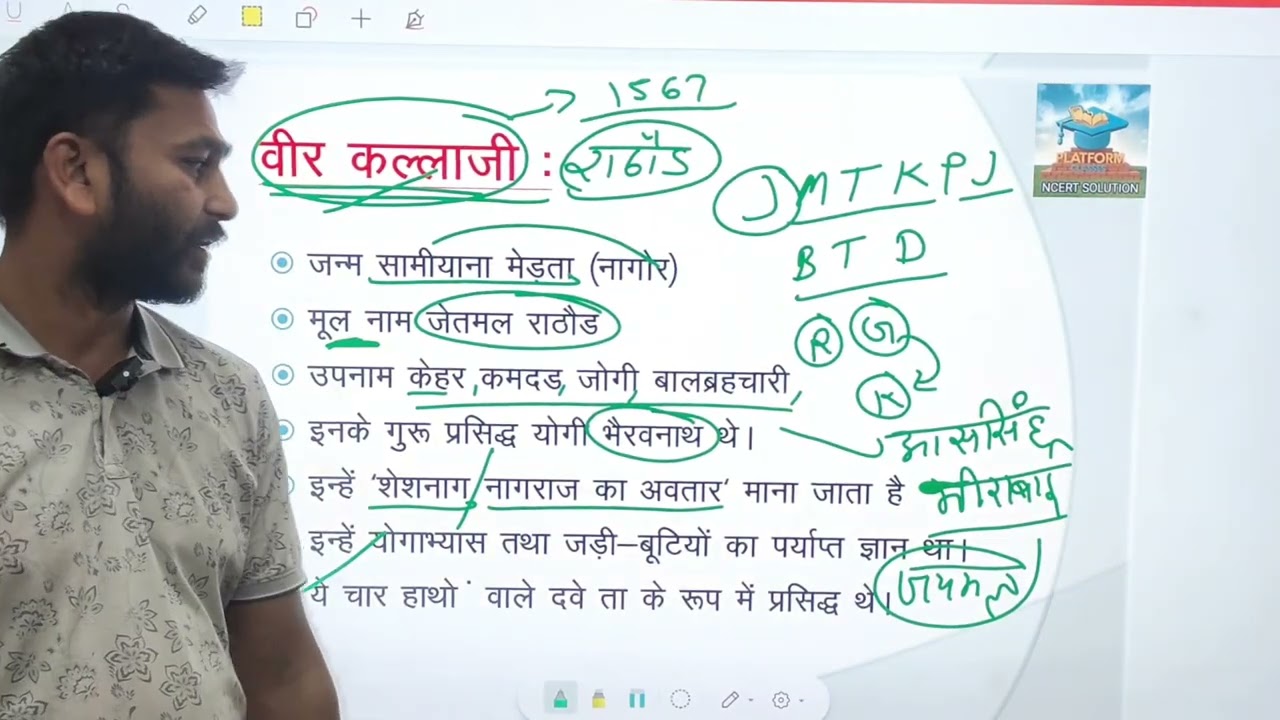 1567
वीर कल्लाजी : राठौड
J M T K P J
PLATFORM
NCERT SOLUTION
B T D
जन्म सामीयाना मेड़ता (नागोर)
मूल नाम जेतमल राठौड
R ज
K
उपनाम केहर, कमदड, जोगी, बालब्रहचारी,
इनके गुरू प्रसिद्ध योगी भैरवनाथ थे।
आससिंह
इन्हें 'शेशनाग, नागराज का अवतार' माना जाता है
मीराबाई
इन्हें योगाभ्यास तथा जड़ी–बूटियों का पर्याप्त ज्ञान था।
ये चार हाथो ं वाले दवे ता के रूप में प्रसिद्ध थे।
जयमल